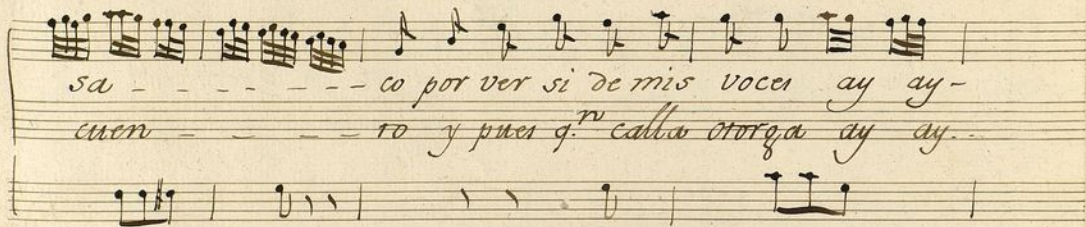 sa - - - - - - - co por ver si de mis voces ay ay -
cuen - - - - - to y pues q.n calla otorga ay ay..